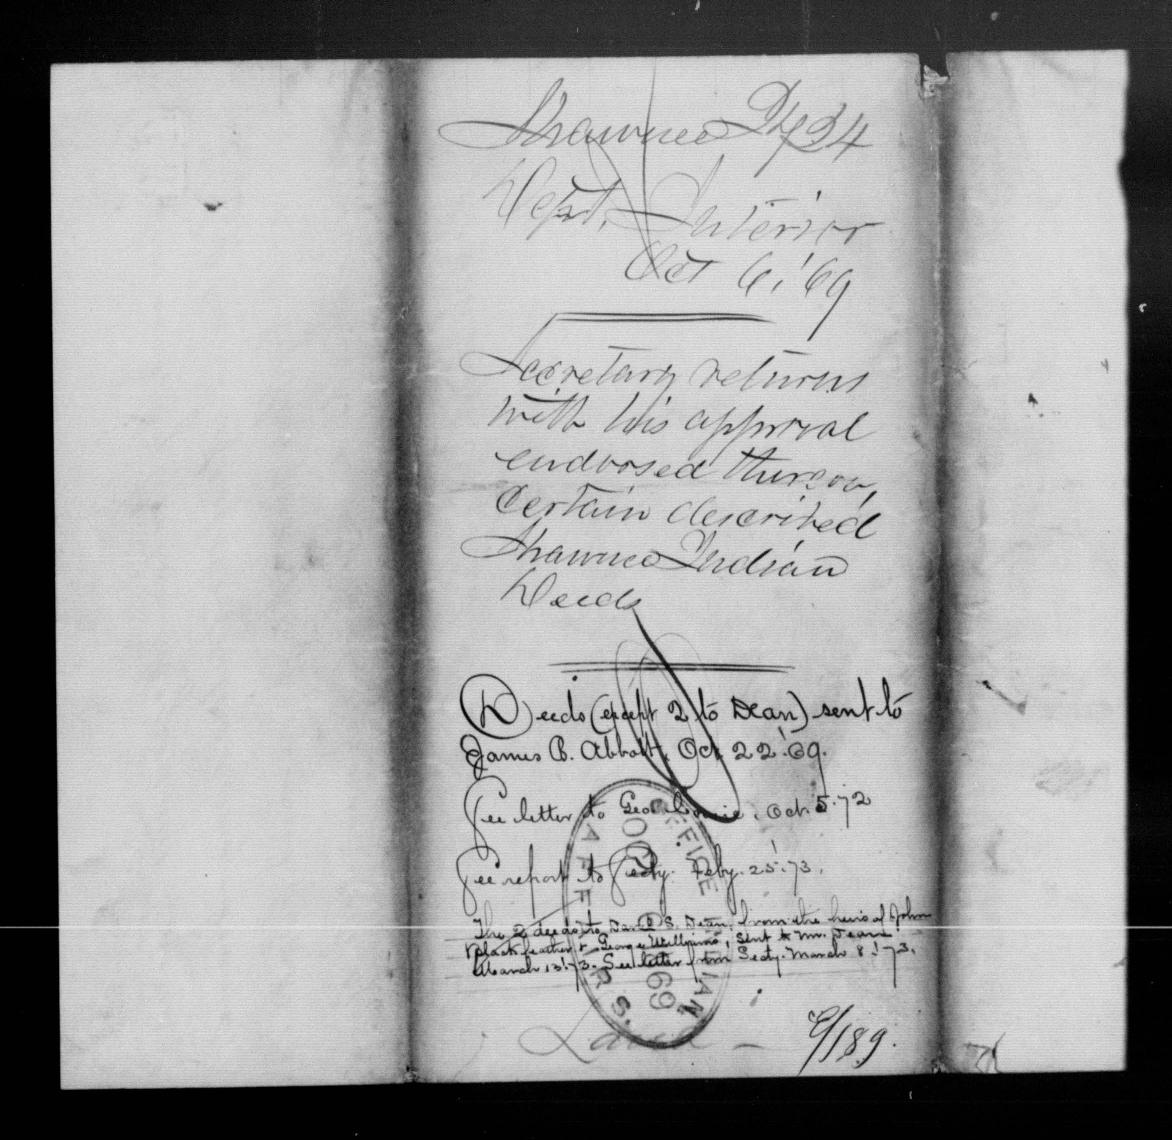 Shawnee
Dept. Interior
Oct 6, '69
Secretary returns
with his approval
endorsed thereon,
certain described
Shawnee Indian
Deeds
Deeds (except 2 to Dean) sent to
James B. Abbott, Oct 22 '69.
See letter to Geo. Oct. 5 '72
See report to Secty. Feby. 25 '73.
The 2 deeds to S. Dean, from the heirs of John
Blackfeather & George Williams, sent to Mr. Dean
March 13 '73. See letter from Secty. March 8 '73.
OFFICE INDIAN AFFAIRS.
OCT 6 69
Land –
/189.